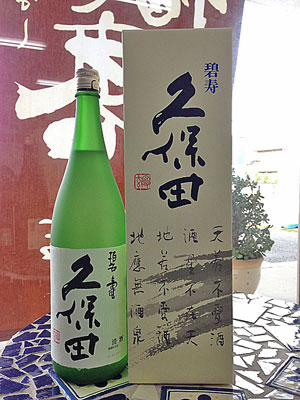 碧寿
久保田
天若不愛酒
酒星不在天
地若不愛酒
地應無酒泉
碧壽
久保田
清酒